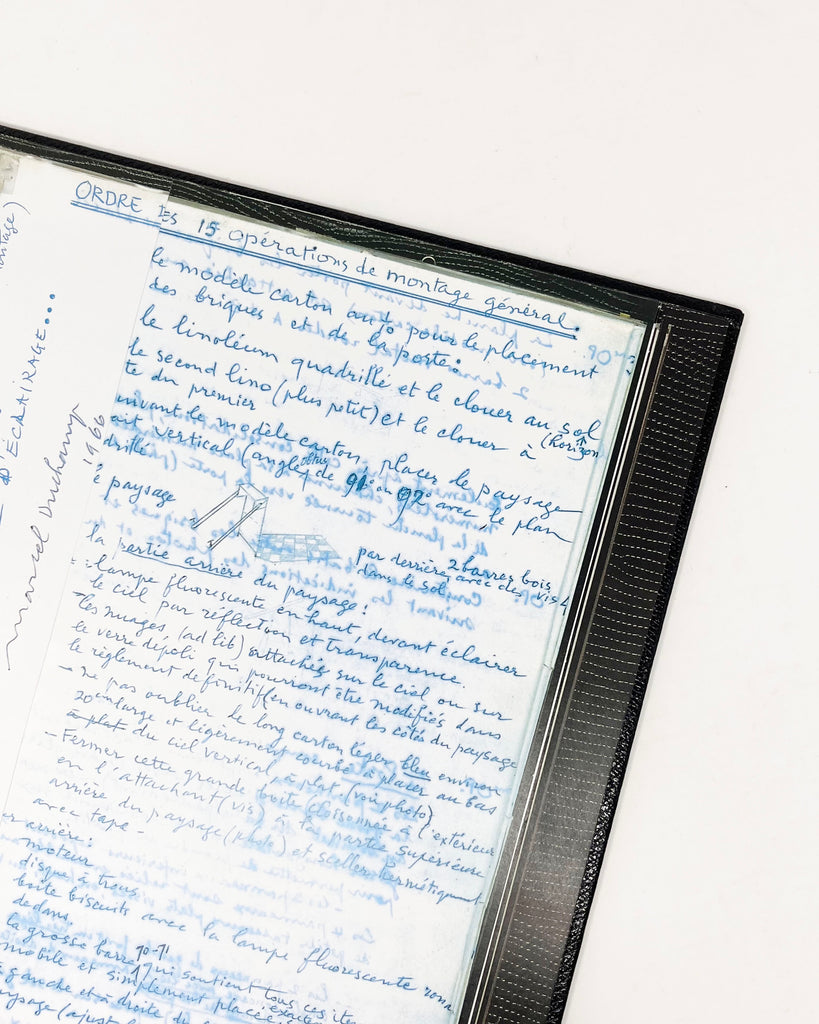 ontage)
D'ÉCLAIRAGE...
marcel Duchamp
1966
ORDRE DES 15 opérations de montage général.
le modèle carton pour le placement
des briques et de la porte:
le linoléum quadrillé et le clouer au sol
le second lino (plus petit) et le clouer à (horizon
te du premier
uivant le modèle carton, placer le paysage
ait vertical (angle obtus de 91° ou 92° avec le plan
drillé
e paysage
par derrière 2 barres bois
avec des vis
dans le sol
la partie arrière du paysage:
lampe fluorescente en haut, devant éclairer
le ciel par réflection et transparence.
- les nuages (ad lib) attachés sur le ciel ou sur
le verre dépoli qui pourront être modifiés dans
le règlement definitif (en ouvrant les côtés du paysage
- Ne pas oublier le long carton léger bleu environ
20 cm large et légerement courbé à placer au bas
à plat du ciel vertical, à plat (voir photo)
- Fermer cette grande boite cloisonnée à l'extérieur
en l'attachant (vis) à la partie supérieure
arrière du paysage (photo) et sceller hermétiquement
avec tape -
er arrière:
moteur
disque à trous
boite biscuits avec la lampe fluorescente ron
dedans.
la grosse barre 70-71 qui soutient tous ces ite
mobile et simplement placée
gauche et à droite du
aysage (ajust